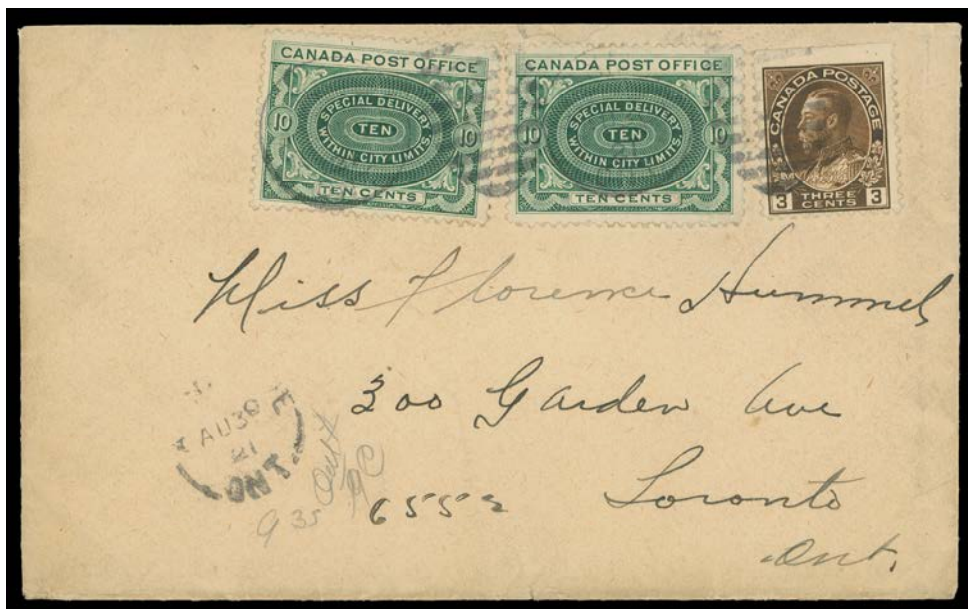 CANADA POST OFFICE
SPECIAL DELIVERY
10 TEN 10
WITHIN CITY LIMITS
TEN CENTS
CANADA POST OFFICE
SPECIAL DELIVERY
10 TEN 10
WITHIN CITY LIMITS
TEN CENTS
CANADA POSTAGE
3 THREE CENTS 3
Miss Florence Hummel
300 Garden Ave
Toronto
Ont.
AU 30
21
ONT.
9 35
6552